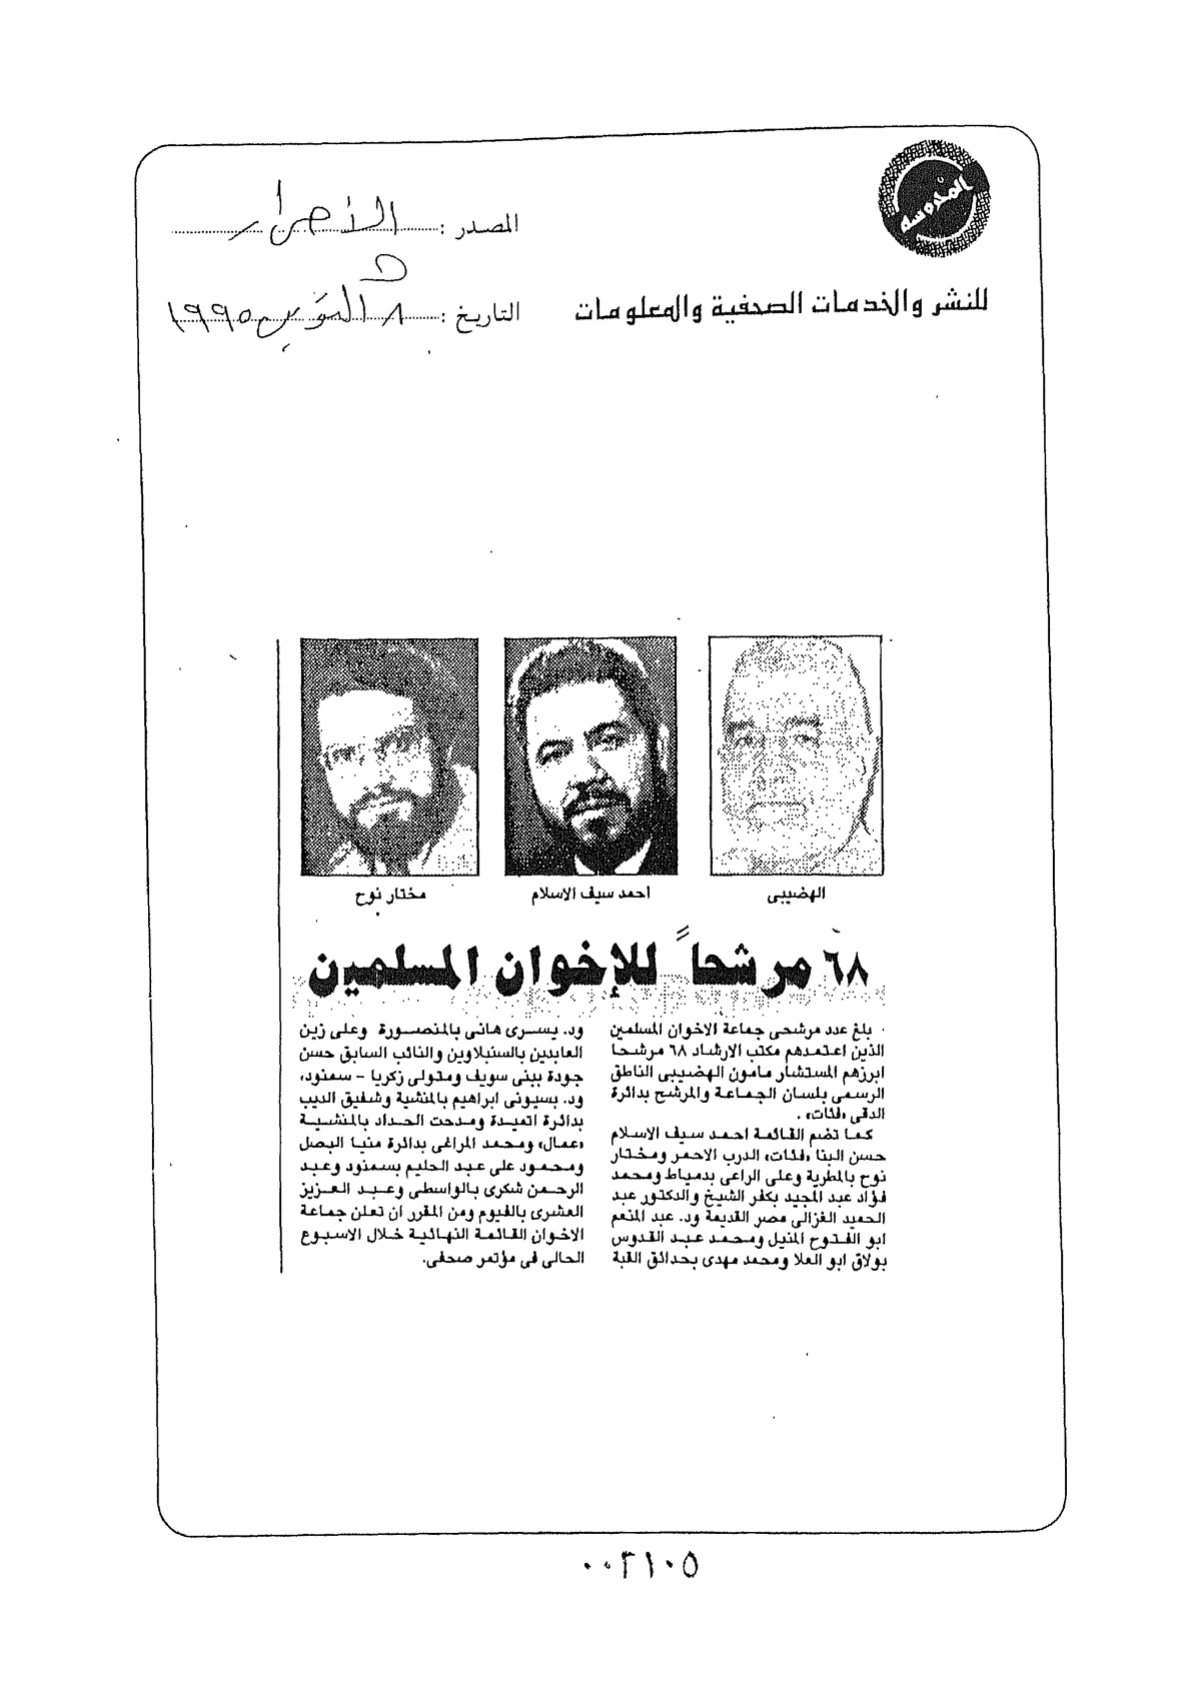 المدوسه
المصدر : الأحرار
للنشر والخدمات الصحفية والمعلومات
التاريخ : ٨ ١٩٩٥
الهضيبى
احمد سيف الاسلام
مختار نوح
٦٨ مرشحاً للإخوان المسلمين
بلغ عدد مرشحى جماعة الاخوان المسلمين
الذين اعتمدهم مكتب الارشاد ٦٨ مرشحا
ابرزهم المستشار مامون الهضيبى الناطق
الرسمى بلسان الجماعة والمرشح بدائرة
الدقى «فئات» .
كما تضم القائمة احمد سيف الاسلام
حسن البنا «فئات» الدرب الاحمر ومختار
نوح بالمطرية وعلى الراعى بدمياط ومحمد
فؤاد عبد المجيد بكفر الشيخ والدكتور عبد
الحميد الغزالى مصر القديمة ود. عبد المنعم
ابو الفتوح المنيل ومحمد عبد القدوس
بولاق ابو العلا ومحمد مهدى بحدائق القبة
ود. يسرى هانى بالمنصورة وعلى زين
العابدين بالسنبلاوين والنائب السابق حسن
جودة ببنى سويف ومتولى زكريا - سمنود،
ود. بسيونى ابراهيم بالمنشية وشفيق الديب
بدائرة اتميدة ومدحت الحداد بالمنشية
«عمال» ومحمد المراغى بدائرة منيا البصل
ومحمود على عبد الحليم بسمنود وعبد
الرحمن شكرى بالواسطى وعبد العزيز
العشرى بالفيوم ومن المقرر ان تعلن جماعة
الاخوان القائمة النهائية خلال الاسبوع
الحالى فى مؤتمر صحفى.
٠٠٢١٠٥